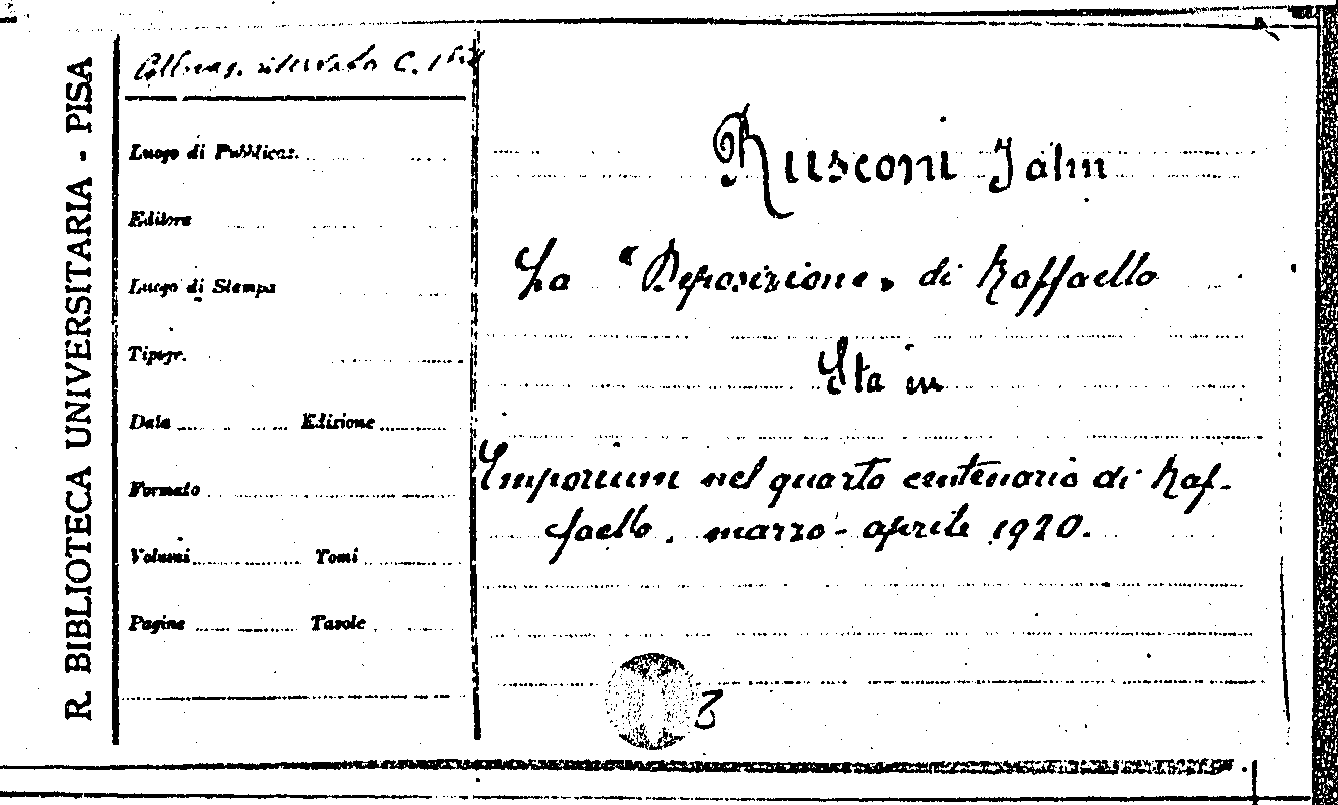 R. BIBLIOTECA UNIVERSITARIA - PISA
Luogo di Pubblicaz.
Editore
Luogo di Stampa
Tipogr.
Data Edizione
Formato
Volumi Tomi
Pagine Tavole
Rusconi Jahn
La "Deposizione" di Raffaello
Sta in
Emporium nel quarto centenario di Raf-
faello. marzo - aprile 1920.